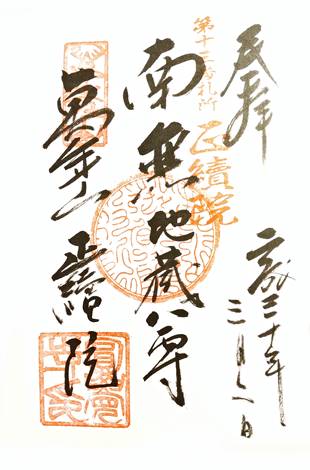 奉拝
第十三番札所
正續院
南無地蔵尊
萬年山 正續院
平成三十年
三月 日